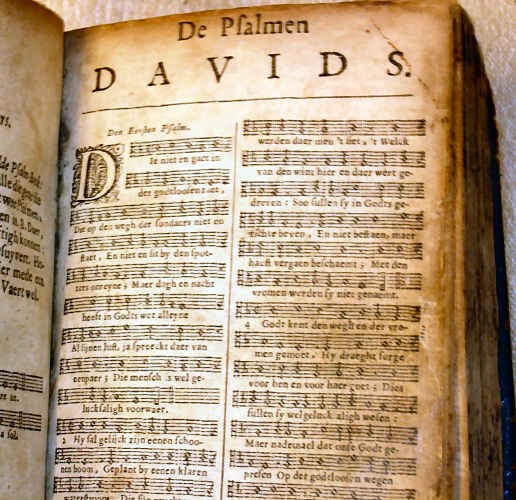 De Pſalmen
DAVIDS.
Den Eerſten Pſalm.
Ie niet en gaet in
der godtloosen raet,
Dat op den wegh der ſondaers niet en
ſtaet, En niet en ſit by den ſpot-
ters onreyne; Maer dagh en nacht
heeft in Godts wet alleyne
Al ſijnen luſt, ja ſpreeckt daer van
eenpaer; Die menſch is wel ge-
luckſaligh voorwaer.
2 Hy ſal gelijck zijn eenen ſchoo-
nen boom, Geplant by eenen klaren
waterſtroom, Die ſijn
werden daer men 't ſiet, 't Welck
van den wint hier en daer wert ge-
dreven: Soo ſullen ſy in Godts ge-
richte beven, En niet beſtaen, maer
haeſt vergaen beſchaemt; Met den
vromen werden ſy niet genaemt.
4 Godt kent den wegh en der vro-
men gemoet, Hy draeght ſorge
voor hen en voor haer goet; Dies
ſullen ſy welgeluckſaligh weſen:
Maer nademael dat onſe Godt ge-
preſen Op der godtlooſen wegen
lde Pſalm-
alle de
ſtigh konnen
ſuyvert. Ho-
er mede een
Vaert wel.